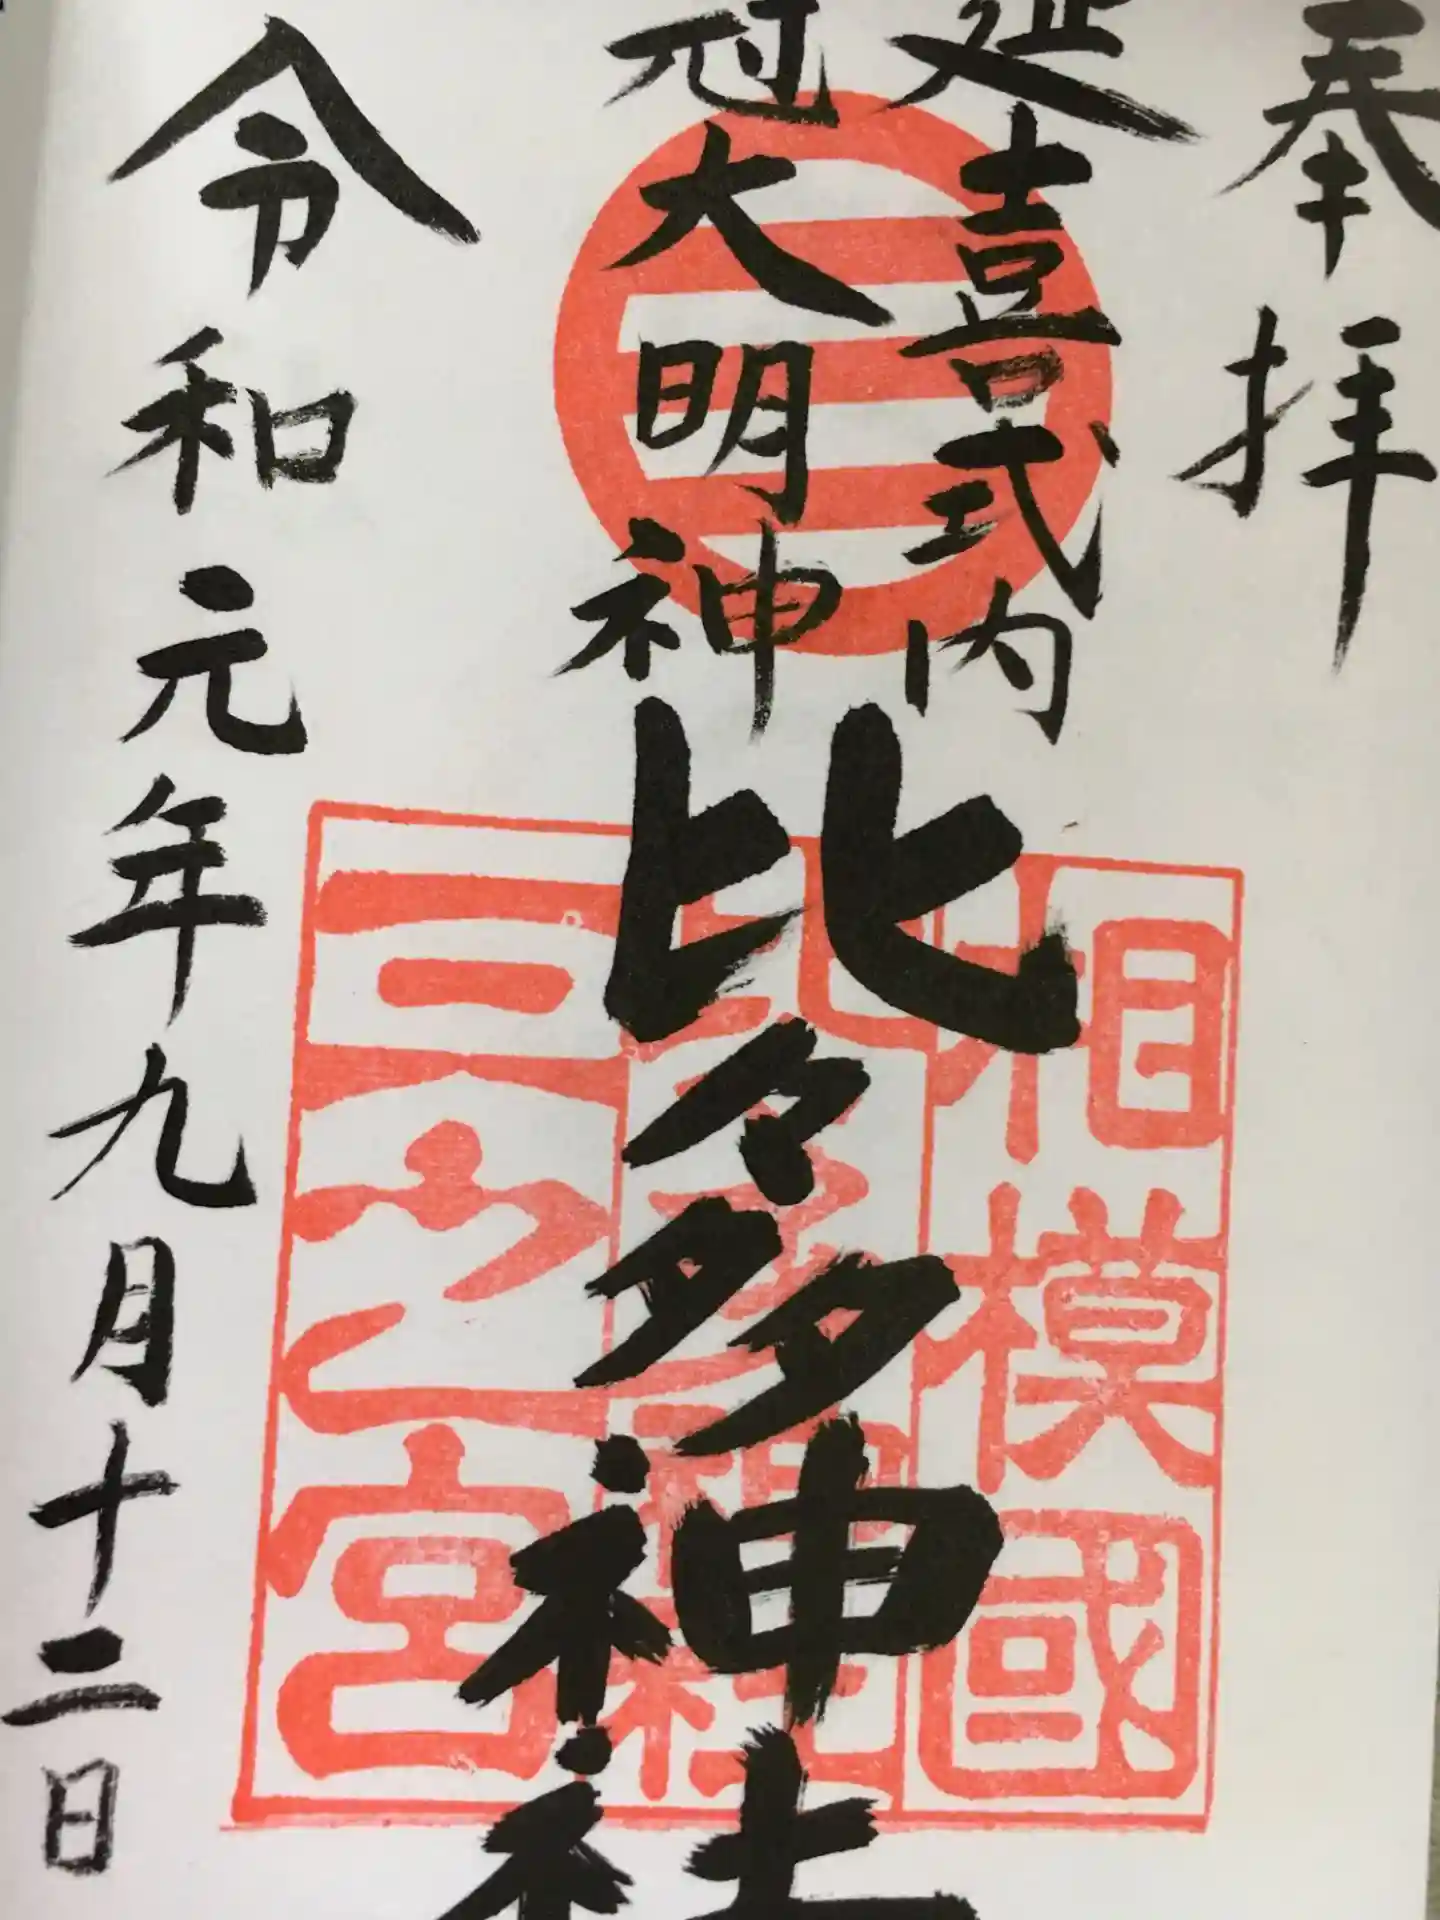 奉拝
延喜式内
冠大明神
比々多神社
令和元年九月十二日
相模國
比々多神社
三之宮